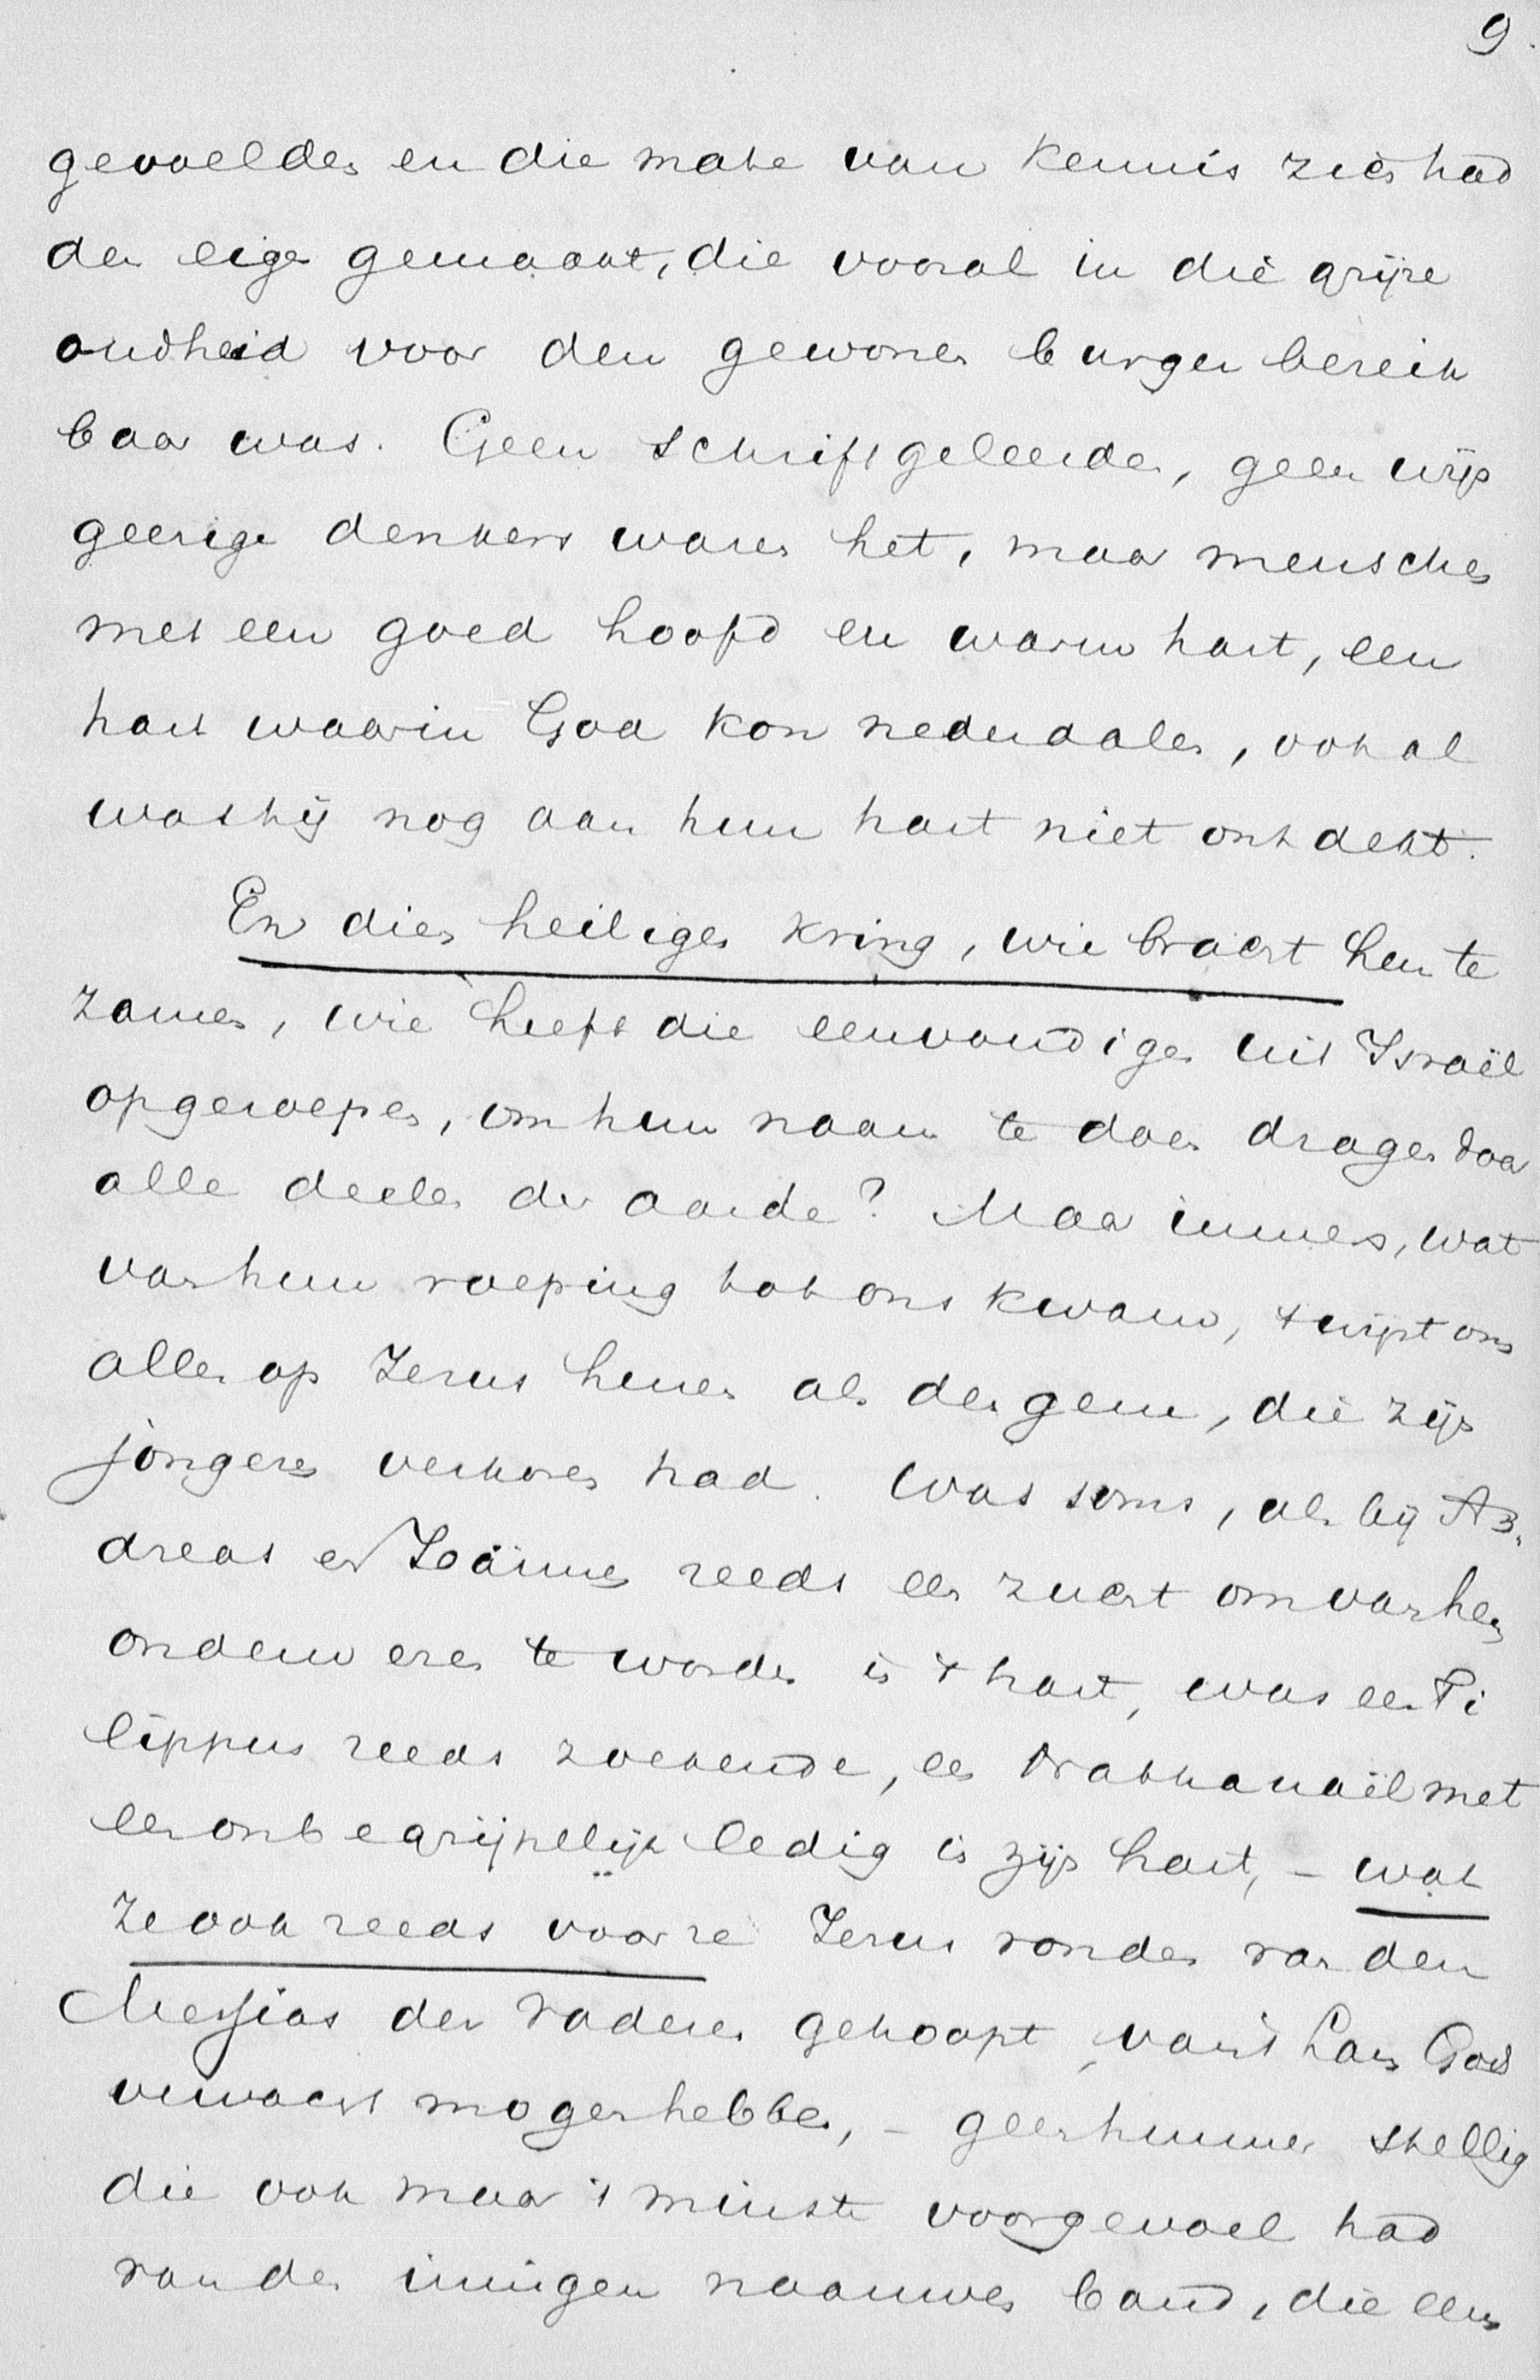 9.
gevoelden en die mate van kennis zich had
den eigen gemaakt, die vooral in die grijze
oudheid voor den gewonen burger bereik
baar was. Geen schriftgeleerden, geen wijs
geerige denkers waren het, maar menschen
met een goed hoofd en warm hart, een
hart waarin God kon nederdalen, ook al
was hij nog aan hun hart niet ontdekt.
En dien heiligen kring, wie bracht hen te
zamen, wie heeft die eenvoudigen uit Israël
opgeroepen, om hun naam te doen dragen door
alle deelen der aarde? Maar immers, wat
van hun roeping tot ons kwam, 't wijst ons
alles op Jezus henen als dengene, die zijn
jongeren verkoren had. Was soms, als bij An
dreas en Joännes reeds een zucht om van hem
onderwezen te worden in 't hart, was een Fi
lippus reeds zoekende, een Nathanaël met
een onbegrijpelijk ledig in zijn hart, – wat
ze ook reeds vóór ze Jezus vonden van den
Messias der vaderen gehoopt, van 't Lam Gods
verwacht mogen hebben, – geen hunner stellig
die ook maar 't minste voorgevoel had
van den innigen naauwen band, die een